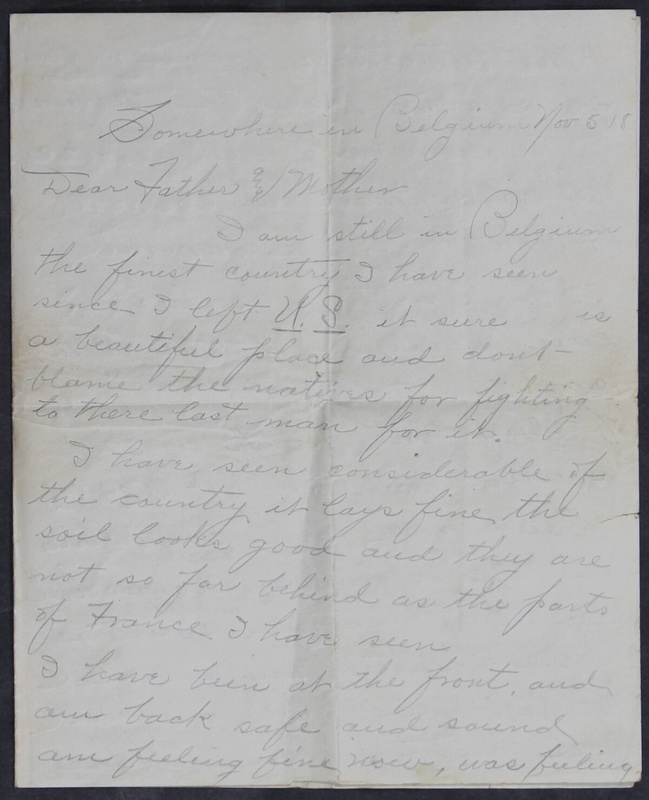 Somewhere in Belgium Nov 5 18
Dear Father & Mother
I am still in Belgium
the finest country I have seen
since I left U.S. it sure is
a beautiful place and dont
blame the natives for fighting
to there last man for it.
I have seen considerable of
the country it lays fine the
soil looks good and they are
not so far behind as the parts
of France I have seen
I have been at the front, and
am back safe and sound
am feeling fine now, was feeling